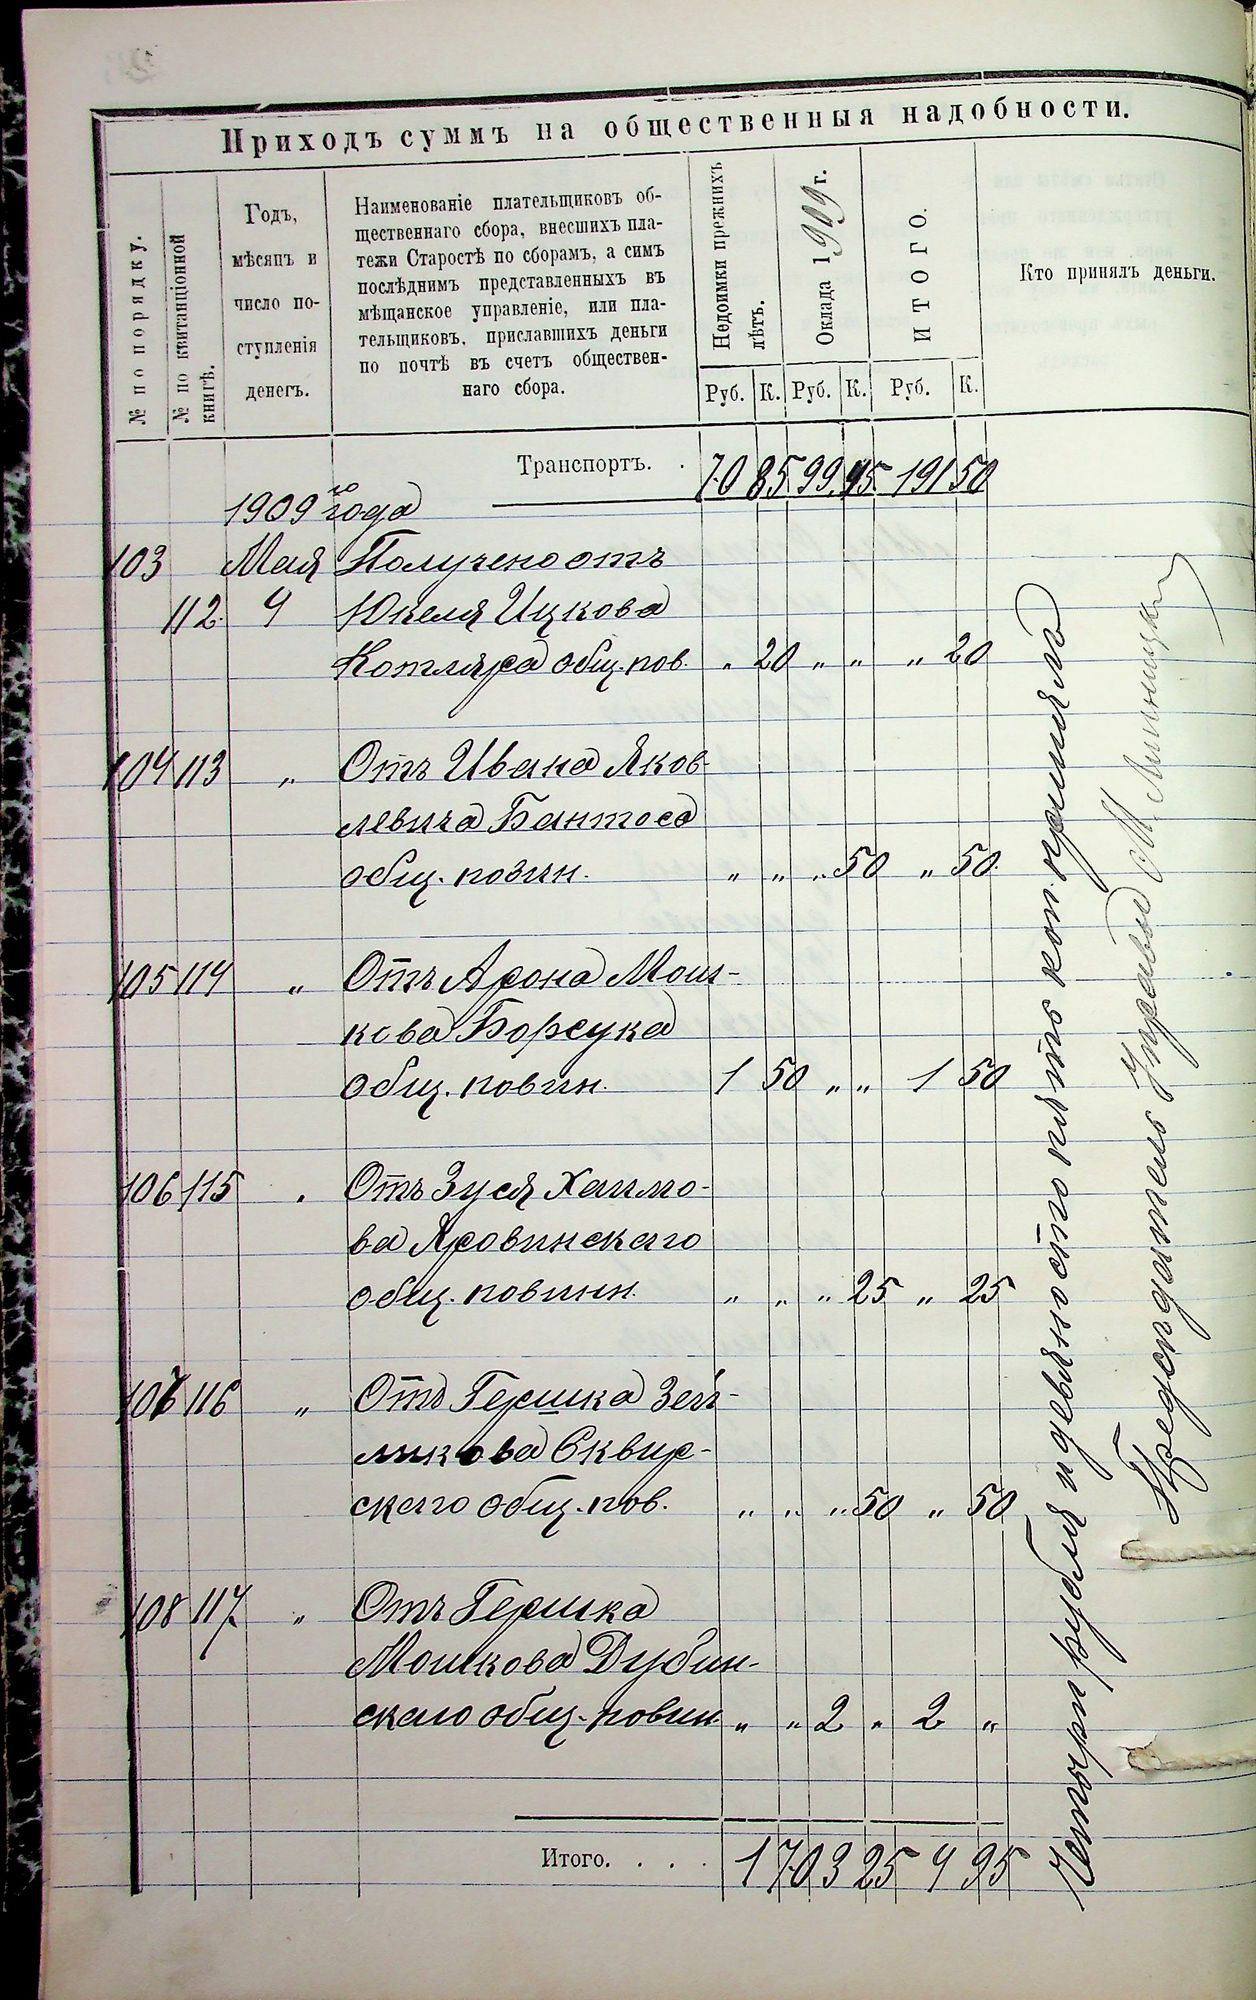 Приходъ суммъ на общественныя надобности.
№ по порядку.
№ по квитанціонной
книгѣ.
Годъ,
мѣсяцъ и
число по-
ступленія
денегъ.
Наименованіе плательщиковъ об-
щественнаго сбора, внесшихъ пла-
тежи Старостѣ по сборамъ, а симъ
послѣднимъ представленныхъ въ
мѣщанское управленіе, или пла-
тельщиковъ, приславшихъ деньги
по почтѣ въ счетъ обществен-
наго сбора.
Недоимки прежнихъ
лѣтъ.
Оклада 1909 г.
ИТОГО.
Кто принялъ деньги.
Руб. К. Руб. К. Руб. К.
Транспортъ. . 70 85 99 95 191 50
1909 го года
103 Мая Получено отъ
112. 4 Юкеля Ицкова
Котляра общ. пов. „ 20 „ „ „ 20
104 113 „ Отъ Ивана Яков-
левича Бантоса
общ. повин. „ „ „ 50 „ 50.
105 114 „ Отъ Арона Мош-
кова Борсука
общ. повин. 1 50 „ „ 1 50
106 115 „ Отъ Зуся Хаимо-
ва Яровинскаго
общ. повинн. „ „ „ 25 „ 25
107 116 „ Отъ Гершка Зей-
ликова Сквир-
скаго общ. пов. „ „ „ 50 „ 50
108 117 „ Отъ Гершка
Мошкова Дубин-
скаго общ. повин „ „ 2 „ 2 „
Итого. . . . 1 70 3 25 4 95
Четыри рубля и девяносто пять коп. принялъ
Предсѣдатель Управы М.